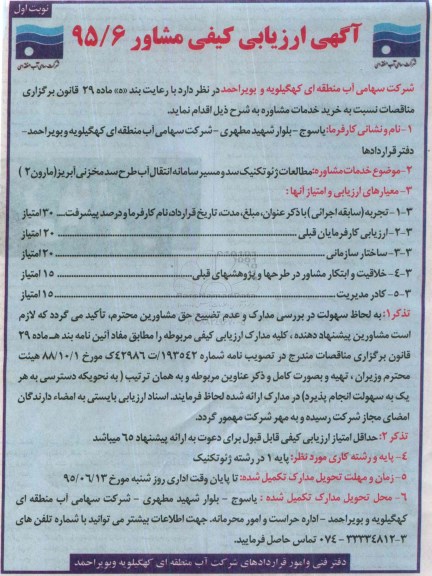 نوبت اول
آگهی ارزیابی کیفی مشاور ۹۵/۶
شرکت سهامی آب منطقه ای کهگیلویه و بویراحمد در نظر دارد با رعایت بند «ه» ماده ۲۹ قانون برگزاری
مناقصات نسبت به خرید خدمات مشاوره به شرح ذیل اقدام نماید.
۱- نام و نشانی کارفرما: یاسوج - بلوار شهید مطهری - شرکت سهامی آب منطقه ای کهگیلویه و بویراحمد-
دفتر قراردادها
۲-موضوع خدمات مشاوره: مطالعات ژئوتکنیک سد و مسیر سامانه انتقال آب طرح سد مخزنی آبریز (مارون۲ )
۳- معیارهای ارزیابی و امتیاز آنها :
۳-۱- تجربه (سابقه اجرائی) با ذکر عنوان، مبلغ، مدت، تاریخ قرارداد، نام کارفرما و درصد پیشرفت.... ۳۰ امتیاز
۳-۲- ارزیابی کارفرمایان قبلی ........ ۲۰ امتیاز
۳-۳- ساختار سازمانی ........ ۲۰ امتیاز
۳-۴- خلاقیت و ابتکار مشاور در طرحها و پژوهشهای قبلی ........ ۱۵ امتیاز
۳-۵- کادر مدیریت ........ ۱۵ امتیاز
تذکر۱: به لحاظ سهولت در بررسی مدارک و عدم تضییع حق مشاورین محترم، تأکید می گردد که لازم
است مشاورین پیشنهاد دهنده ، کلیه مدارک ارزیابی کیفی مربوطه را مطابق مفاد آئین نامه بند هـ ماده ۲۹
قانون برگزاری مناقصات مندرج در تصویب نامه شماره ۱۹۳۵۴۲/ت ۴۲۹۸۶ک مورخ ۸۸/۱۰/۱ هیئت
محترم وزیران ، تهیه و بصورت کامل و ذکر عناوین مربوطه و به همان ترتیب ( به نحویکه دسترسی به هر
یک به سهولت انجام پذیرد) در مدارک ارائه شده لحاظ فرمایند. اسناد ارزیابی بایستی به امضاء دارندگان
امضای مجاز شرکت رسیده و به مهر شرکت مهمور گردد.
تذکر ۲: حداقل امتیاز ارزیابی کیفی قابل قبول برای دعوت به ارائه پیشنهاد ۶۵ میباشد
۴- پایه و رشته کاری مورد نظر: پایه ۱ در رشته ژئوتکنیک
۵- زمان و مهلت تحویل مدارک تکمیل شده: تا پایان وقت اداری روز شنبه مورخ ۹۵/۰۶/۱۳
۶- محل تحویل مدارک تکمیل شده : یاسوج - بلوار شهید مطهری - شرکت سهامی آب منطقه ای
کهگیلویه و بویراحمد - اداره حراست و امور محرمانه. جهت اطلاعات بیشتر می توانید با شماره تلفن های
۳-۳۳۳۳۴۸۱۲ - ۰۷۴ تماس حاصل فرمایید.
دفتر فنی وامور قراردادهای شرکت آب منطقه ای کهگیلویه وبویراحمد